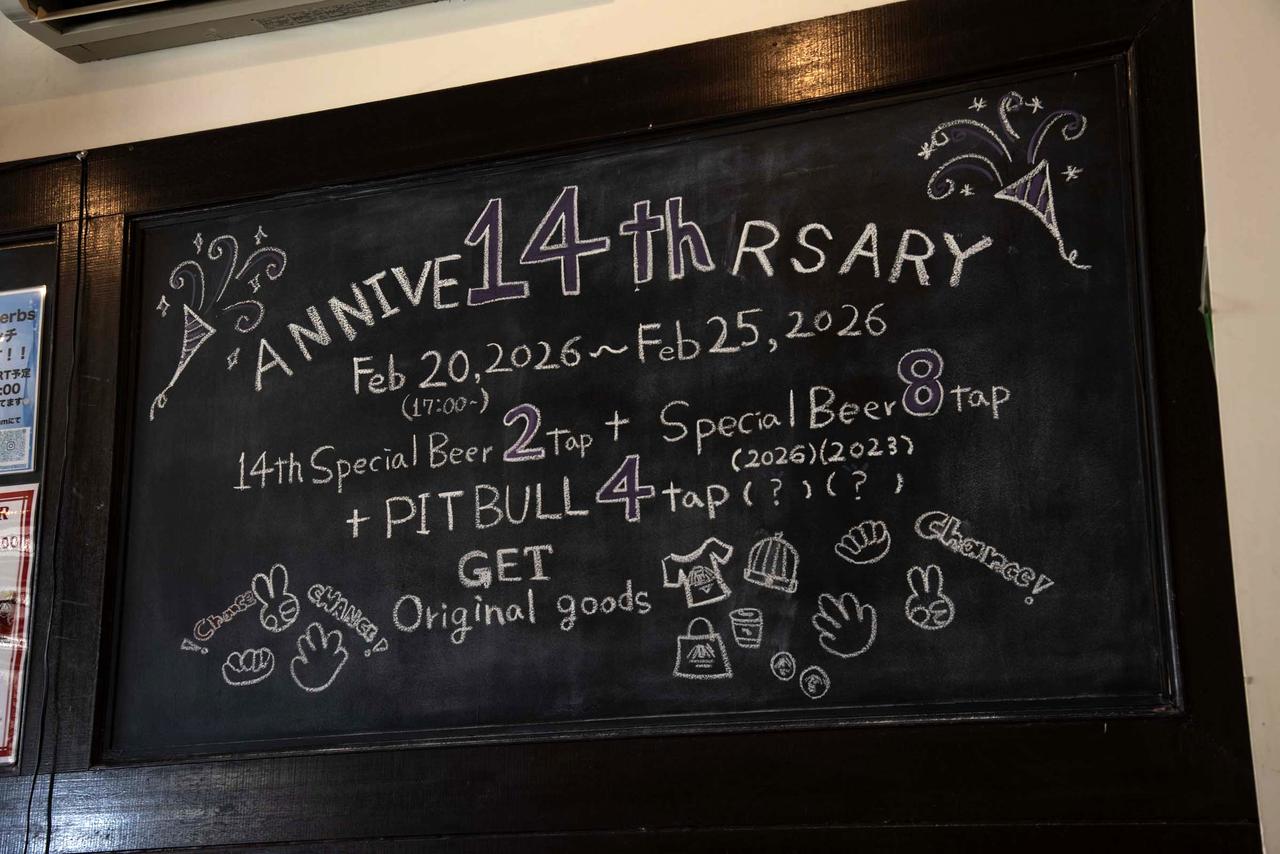 ANNIVE14thRSARY
Feb 20, 2026 ~ Feb 25, 2026
(17:00~)
14th Special Beer 2 Tap + Special Beer 8 tap
(2026)(2023)
+ PIT BULL 4 tap (?)(?)
GET
Original goods
Chance!
CHANCE!
Chance!
erbs
ッチ
！！
RT予定
:00
てます